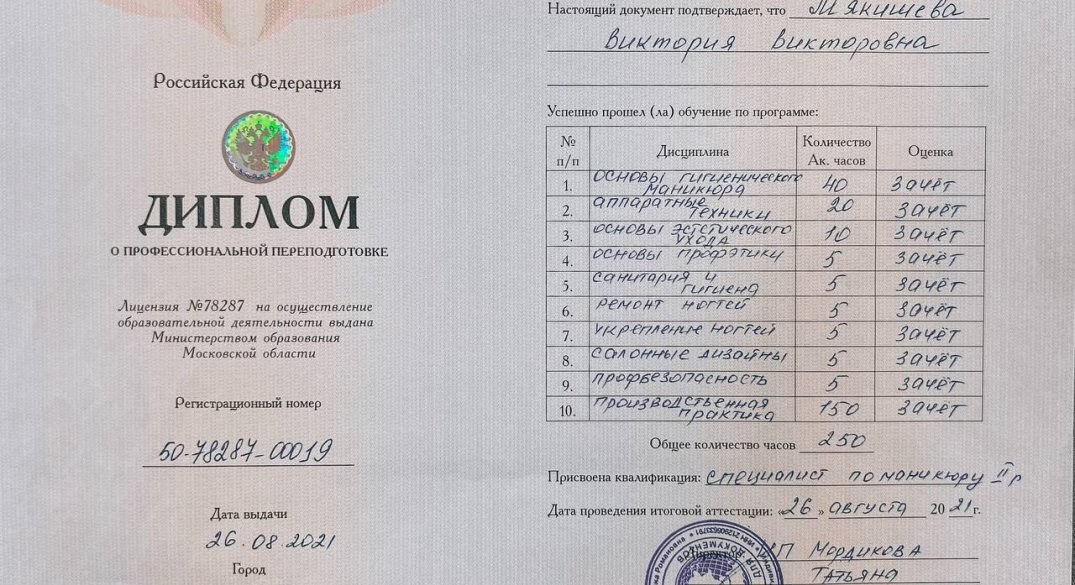 Российская Федерация
ДИПЛОМ
О ПРОФЕССИОНАЛЬНОЙ ПЕРЕПОДГОТОВКЕ
Лицензия №78287 на осуществление
образовательной деятельности выдана
Министерством образования
Московской области
Регистрационный номер
50-78287-00019
Дата выдачи
26.08.2021
Город
Настоящий документ подтверждает, что Мякишева
Виктория Викторовна
Успешно прошел (ла) обучение по программе:
№ п/п Дисциплина Количество Ак. часов Оценка
1. основы гигиенического маникюра 40 зачёт
2. аппаратные техники 20 зачёт
3. основы эстетического ухода 10 зачёт
4. основы профэтики 5 зачёт
5. санитария и гигиена 5 зачёт
6. ремонт ногтей 5 зачёт
7. укрепление ногтей 5 зачёт
8. салонные дизайны 5 зачёт
9. профбезопасность 5 зачёт
10. производственная практика 150 зачёт
Общее количество часов 250
Присвоена квалификация: специалист по маникюру II р
Дата проведения итоговой аттестации: «26» августа 2021 г.
Директор ИП Мордикова
Татьяна
ДЛЯ ДОКУМЕНТОВ